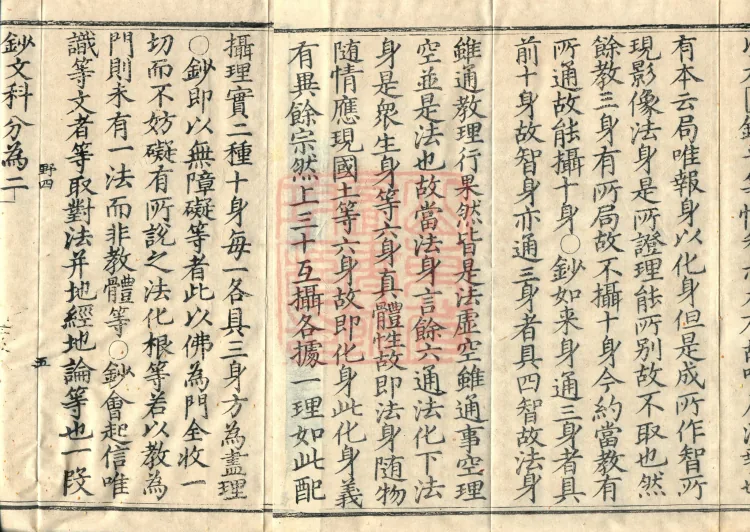 有本云局唯報身以化身但是成所作智所
現影像法身是所證理能所別故不取也然
餘教三身有所局故不攝十身今約當教有
所通故能攝十身〇鈔如来身通三身者具
前十身故智身亦通三身者具四智故法身
雖通教理行果然皆是法虛空雖通事空理
空並是法也故當法身言餘六通法化下法
身是衆生身等六身真體性故即法身随物
随情應現國土等六身故即化身此化身義
有異餘宗然上三十互攝各據一理如此配
攝理實二種十身每一各具三身方為盡理
〇鈔即以無障礙等者此以佛為門全收一
切而不妨礙有所說之法化根等若以教為
門則未有一法而非教體等〇鈔會起信唯
識等文者等取對法并地經地論等也一段
野四
五
鈔文科分為二